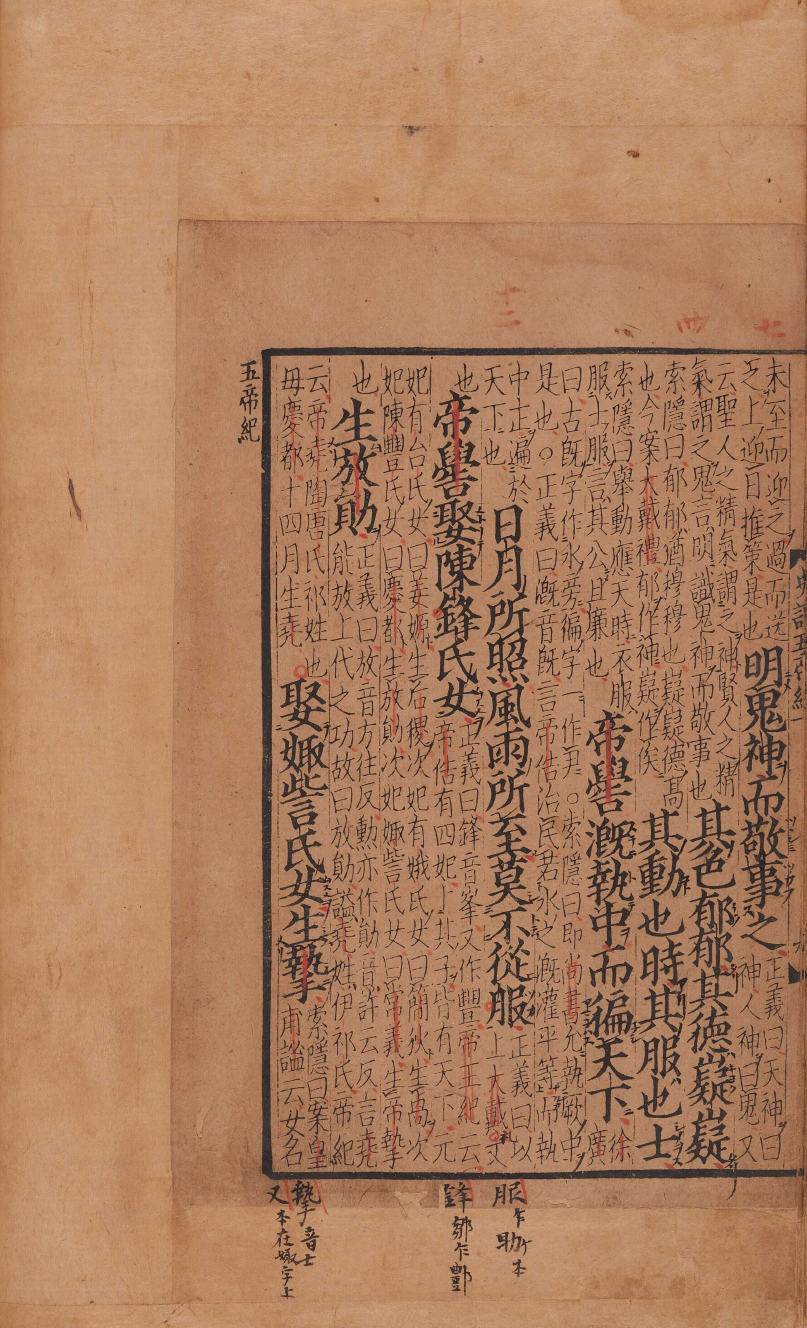 未至而迎之過而送
之上迎日推策是也明鬼神而敬事之正義曰天神曰神人神曰鬼又
云聖人之精氣謂之神賢人之精
氣謂之鬼言明識鬼神而敬事也其色郁郁其德嶷嶷
索隱曰郁郁猶穆穆也嶷嶷德高
也今案大戴禮郁作神嶷作俟其動也時其服也士
索隱曰舉動應天時衣服
服士服言其公且廉也帝嚳漑執中而徧天下徐廣
曰古旣字作水旁徧字一作尹○索隱曰即尚書允執厥中
是也○正義曰漑音旣言帝俈治民若水之漑灌平等而執
中正遍於
天下也日月所照風雨所至莫不從服正義曰以上大戴文
也帝嚳娶陳鋒氏女正義曰鋒音峯又作豐帝王紀云帝俈有四妃卜其子皆有天下元
妃有台氏女曰姜嫄生后稷次妃有娀氏女曰簡狄生卨次
妃陳豐氏女曰慶都生放勛次妃娵訾氏女曰常義生帝摯
也生放勛正義曰放音方往反勲亦作勛音許云反言堯能放上代之功故曰放勛謚堯姓伊祁氏帝紀
云帝堯陶唐氏祁姓也
母慶都十四月生堯○娶娵訾氏女生摯索隱曰案皇甫謐云女名
五帝紀
十二
卅
七
服乍助
鋒鄒乍
摯音士
又本在娵字上